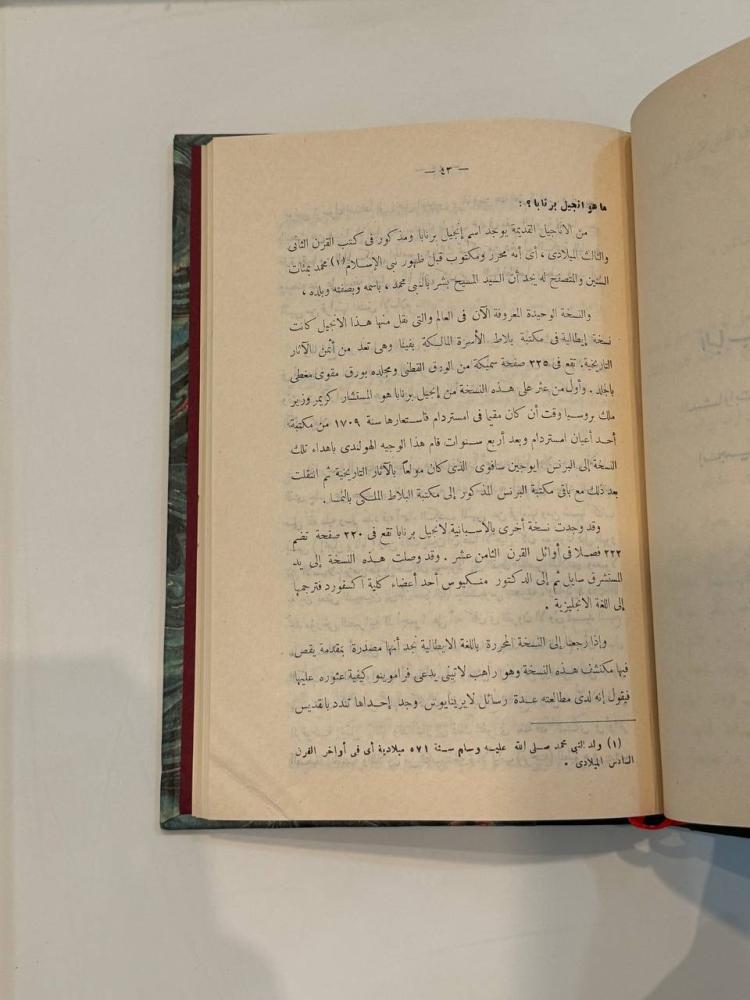 — ٤٣ —
ما هو انجيل برنابا ؟ :
من الأناجيل القديمة يوجد اسم إنجيل برنابا ومذكور فى كتب القرن الثانى
والثالث الميلادى ، أى أنه محرر ومكتوب قبل ظهور نبى الإسلام (١) محمد بمئات
السنين والمتصفح له يجد أن السيد المسيح بشر بالنبى محمد ، باسمه وبصفته وبلده ،
والنسخة الوحيدة المعروفة الآن فى العالم والتى نقل منها هذا الانجيل كانت
نسخة إيطالية فى مكتبة بلاط الأسرة المالكة بفينا وهى تعد من أثمن الآثار
التاريخية. تقع فى ٢٢٥ صفحة سميكة من الورق القطنى ومجلده بورق مقوى مغطى
بالجلد . وأول من عثر على هذه النسخة من إنجيل برنابا هو المستشار كريمر وزير
ملك بروسيا وقت أن كان مقيما فى امستردام فاستعارها سنة ١٧٠٩ من مكتبة
أحد أعيان امستردام وبعد أربع سنوات قام هذا الوجيه الهولندى باهداء تلك
النسخة إلى البرنس ايوجين سافوى الذى كان مولعاً بالآثار التاريخية ثم انتقلت
بعد ذلك مع باقى مكتبة البرنس المذكور إلى مكتبة البلاط الملكى بالنمسا .
وقد وجدت نسخة أخرى بالأسبانية لانجيل برنابا تقع فى ٢٢٠ صفحة تضم
٢٢٢ فصلا فى أوائل القرن الثامن عشر . وقد وصلت هذه النسخة إلى يد
المستشرق سايل ثم إلى الدكتور منكيوس أحد أعضاء كلية اكسفورد فترجمها
إلى اللغة الانجليزية .
وإذا رجعنا إلى النسخة المحررة باللغة الايطالية نجد أنها مصدرة بمقدمة يقص
فيها مكتشف هذه النسخة وهو راهب لاتينى يدعى فرامرينو كيفية عثوره عليها
فيقول إنه لدى مطالعته عدة رسائل لايريناپوس وجد إحداها تندد بالقديس
(١) ولد النبى محمد صلى الله عليه وسلم سنة ٥٧١ ميلادية أى فى أواخر القرن
السادس الميلادى .